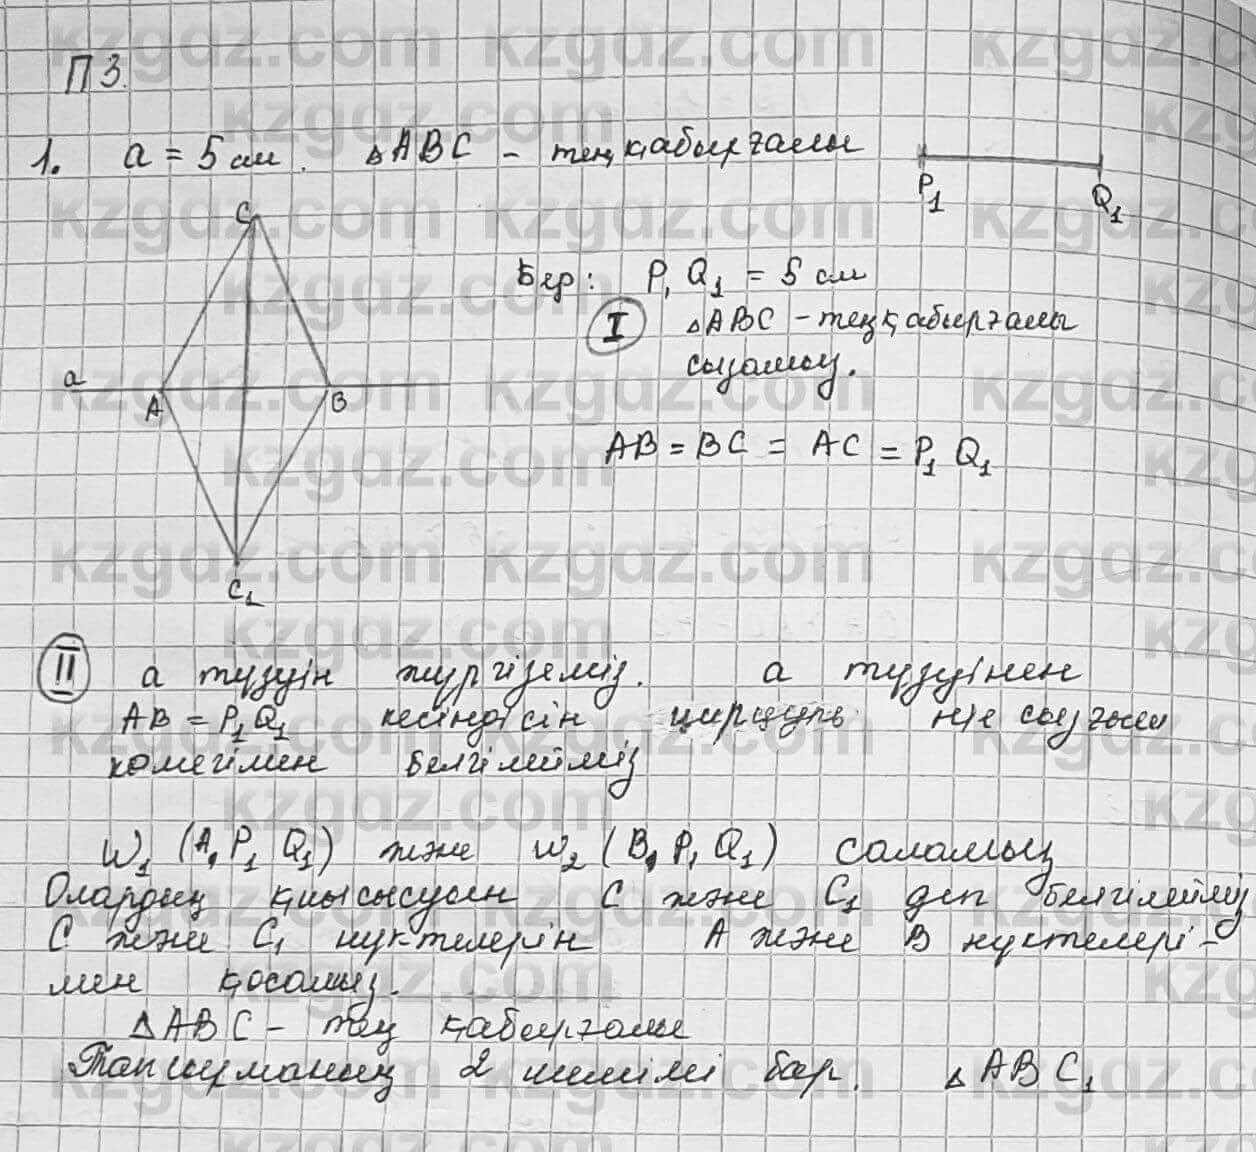 П 3.
1. a = 5 см. △ABC – теңқабырғалы
P₁ Q₁
C
Бер: P₁ Q₁ = 5 см
I △ABC – теңқабырғалы
сызамыз.
a
A B
AB = BC = AC = P₁ Q₁
C₁
II a түзуін жүргіземіз. a түзуінен
AB = P₁Q₁ кесіндісін циркуль не сызғыш
көмегімен белгілейміз
W₁ (A, P₁ Q₁) және w₂ (B, P₁ Q₁) саламыз
Олардың қиысысуын C және C₁ деп белгілейміз
C және C₁ нүктелерін A және B нүктелері-
мен қосамыз.
△ABC – тең қабырғалы
Тапсырманың 2 шешімі бар. △ABC₁
kzgdz.com